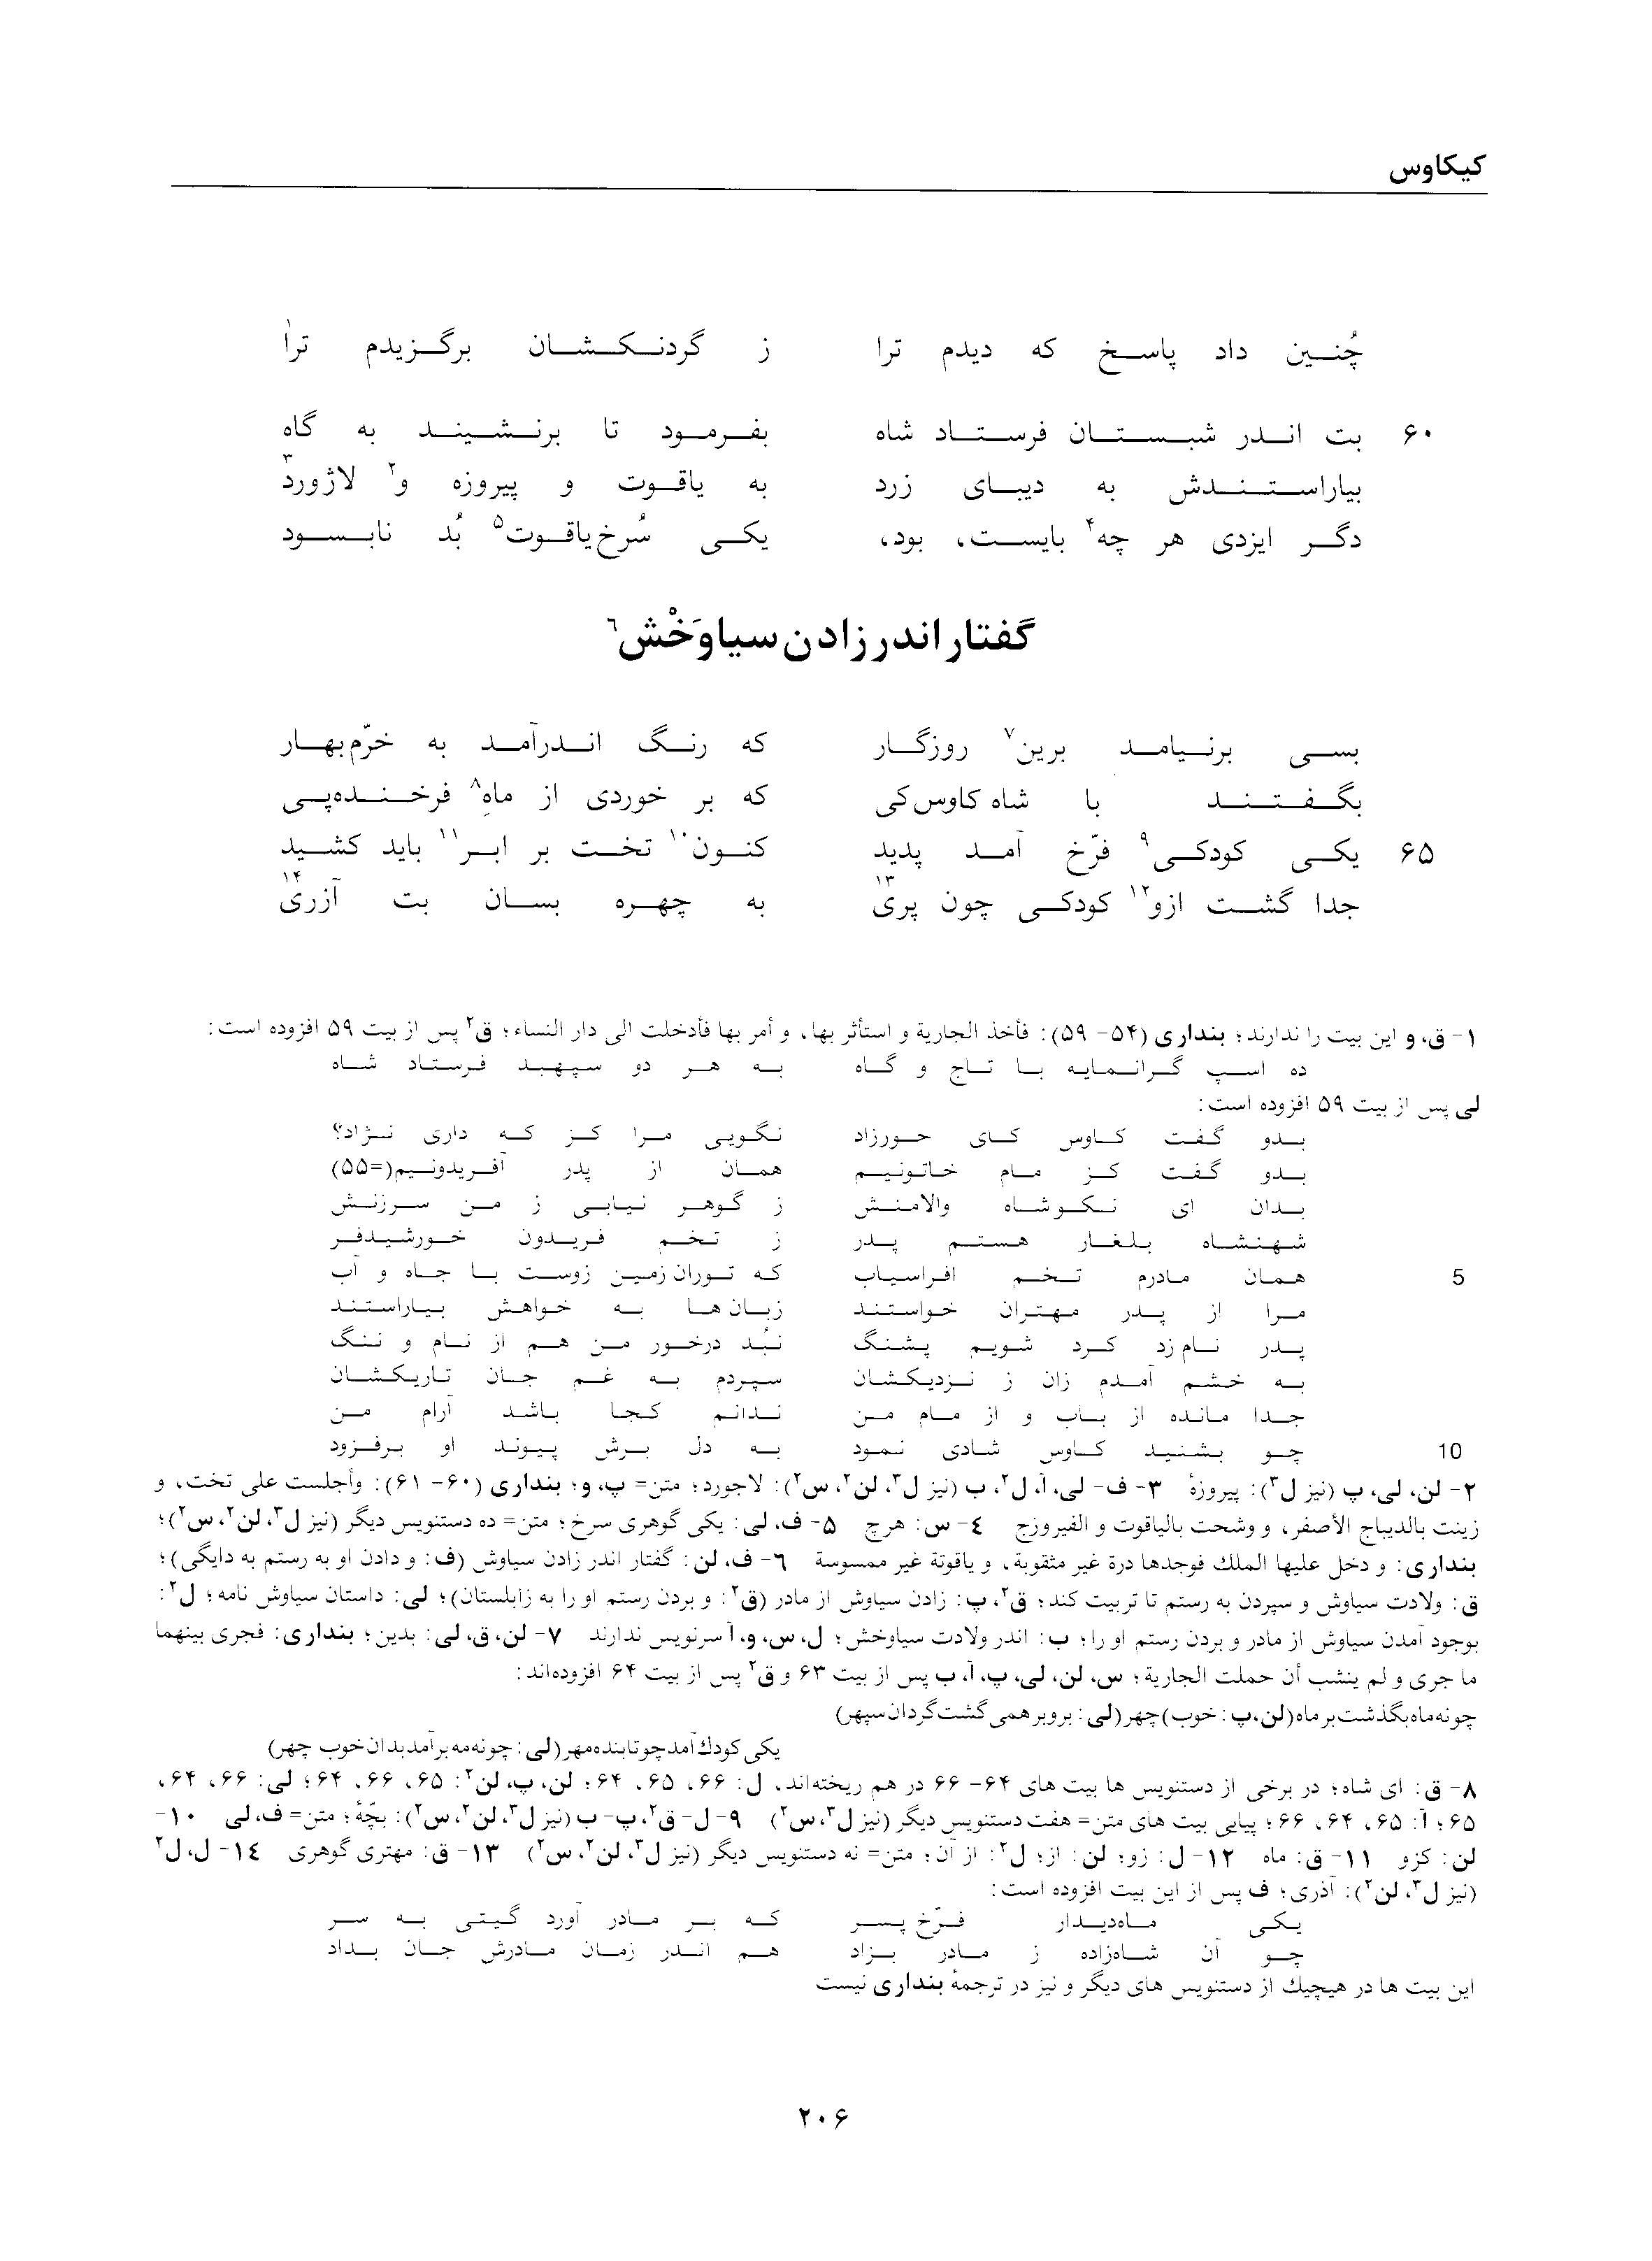 کیکاوس
چُنین داد پاسخ که دیدم ترا ز گردنکشان برگزیدم ترا۱
۶۰ بت اندر شبستان فرستاد شاه بفرمود تا برنشیند به گاه
بیاراستندش به دیبای زرد به یاقوت و پیروزه و۲ لاژورد۳
دگر ایزدی هر چه۴ بایست، بود، یکی سُرخ یاقوت۵ بُد نابسود
گفتار اندر زادن سیاوَخْش۶
بسی برنیامد برین۷ روزگار که رنگ اندرآمد به خرّم بهار
بگفتند با شاه کاوس کی که بر خوردی از ماهِ۸ فرخنده‌پی
۶۵ یکی کودکی۹ فرّخ آمد پدید کنون۱۰ تخت بر ابر۱۱ باید کشید
جدا گشت ازو۱۲ کودکی چون پری۱۳ به چهره بسان بت آزری۱۴
۱- ق، و این بیت را ندارند؛ بنداری (۵۴- ۵۹): فأخذ الجاریة و استأثر بها، و أمر بها فأدخلت الی دار النساء؛ ق۲ پس از بیت ۵۹ افزوده است:
ده اسپ گرانمایه با تاج و گاه به هر دو سپهبد فرستاد شاه
لی پس از بیت ۵۹ افزوده است:
بدو گفت کاوس کای حورزاد نگویی مرا کز که داری نژاد؟
بدو گفت کز مام خاتونیم همان از پدر آفریدونیم(=۵۵)
بدان ای نکو شاه والامنش ز گوهر نیابی ز من سرزنش
شهنشاه بلغار هستم پدر ز تخم فریدون خورشیدفر
5 همان مادرم تخم افراسیاب که توران زمین زوست با جاه و آب
مرا از پدر مهتران خواستند زبان‌ها به خواهش بیاراستند
پدر نامزد کرد شویم پشنگ نبُد درخور من هم از نام و ننگ
به خشم آمدم زان ز نزدیکشان سپردم به غم جان تاریکشان
جدا مانده از باب و از مام من ندانم کجا باشد آرام من
10 چو بشنید کاوس شادی نمود به دل برش پیوند او برفزود
۲- لن، لی، پ (نیز ل۳): پیروزهٔ ۳- ف- لی، آ، ل۲، ب (نیز ل۳، لن۲، س۲): لاجورد؛ متن= پ، و؛ بنداری (۶۰- ۶۱): وأجلست علی تخت، و
زینت بالدیباج الأصفر، و وشحت بالیاقوت و الفیروزج ۴- س: هرچ ۵- ف، لی: یکی گوهری سرخ؛ متن= ده دستنویس دیگر (نیز ل۳، لن۲، س۲)؛
بنداری: و دخل علیها الملك فوجدها درة غیر مثقوبة، و یاقوتة غیر ممسوسة ۶- ف، لن: گفتار اندر زادن سیاوش (ف: و دادن او به رستم به دایگی)؛
ق: ولادت سیاوش و سپردن به رستم تا تربیت کند؛ ق۲، پ: زادن سیاوش از مادر (ق۲: و بردن رستم او را به زابلستان)؛ لی: داستان سیاوش نامه؛ ل۲:
بوجود آمدن سیاوش از مادر و بردن رستم او را؛ ب: اندر ولادت سیاوخش؛ ل، س، و، آ سرنویس ندارند ۷- لن، ق، لی: بدین؛ بنداری: فجری بینهما
ما جری و لم ینشب أن حملت الجاریة؛ س، لن، لی، پ، آ، ب پس از بیت ۶۳ و ق۲ پس از بیت ۶۴ افزوده‌اند:
چو نه ماه بگذشت بر ماه(لن، پ: خوب)چهر(لی: برو بر همی گشت گردان سپهر)
یکی کودك آمد چو تابنده مهر(لی: چو نه مه برآمد بدان خوب چهر)
۸- ق: ای شاه؛ در برخی از دستنویس ها بیت های ۶۴- ۶۶ در هم ریخته‌اند. ل: ۶۶، ۶۵، ۶۴؛ لن، پ، لن۲: ۶۵، ۶۶، ۶۴؛ لی: ۶۶، ۶۴،
۶۵؛ آ: ۶۵، ۶۴، ۶۶؛ پیاپی بیت های متن= هفت دستنویس دیگر (نیز ل۳، س۲) ۹- ل- ق۲، پ- ب (نیز ل۳، لن۲، س۲): بچّهٔ؛ متن= ف، لی ۱۰-
لن: کزو ۱۱- ق: ماه ۱۲- ل: زو؛ لن: از؛ ل۲: از آن؛ متن= نه دستنویس دیگر (نیز ل۳، لن۲، س۲) ۱۳- ق: مهتری گوهری ۱۴- ل، ل۲
(نیز ل۳، لن۲): آذری؛ ف پس از این بیت افزوده است:
یکی ماه‌دیدار فرّخ پسر که بر مادر آورد گیتی به سر
چو آن شاه‌زاده ز مادر بزاد هم اندر زمان مادرش جان بداد
این بیت ها در هیچیك از دستنویس های دیگر و نیز در ترجمهٔ بنداری نیست
۲۰۶